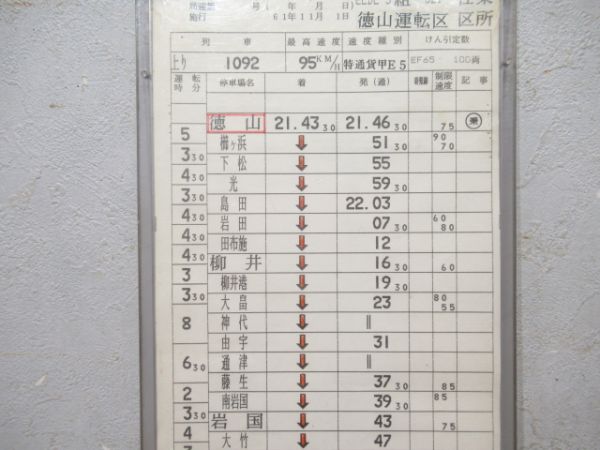 号 ( 年 月 日)
施行 61年11月1日 徳山運転区 区所
列 車 最高速度 速度種別 けん引定数
上り 1092 95KM/H 特通貨甲E5 EF65 100両
運転時分 停車場名 着 発(通) 制限速度 記事
徳 山 21.43 30 21.46 30 75
5
櫛ヶ浜 ↓ 51 30 90 70
3 30
下 松 ↓ 55
4 30
光 ↓ 59 30
3 30
島 田 ↓ 22.03
4 30
岩 田 ↓ 07 30 60 80
4 30
田布施 ↓ 12
4 30
柳 井 ↓ 16 30 60
3
柳井港 ↓ 19 30
3 30
大 畠 ↓ 23 80 55
8
神 代 ↓ ||
由 宇 ↓ 31
6 30
通 津 ↓ ||
藤 生 ↓ 37 30 85
2
南岩国 ↓ 39 30 85
3 30
岩 国 ↓ 43 75
4
大 竹 ↓ 47